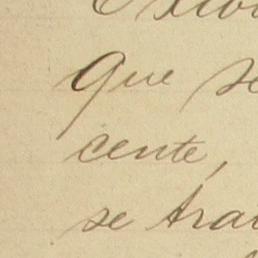 Que se
cente,
se trat